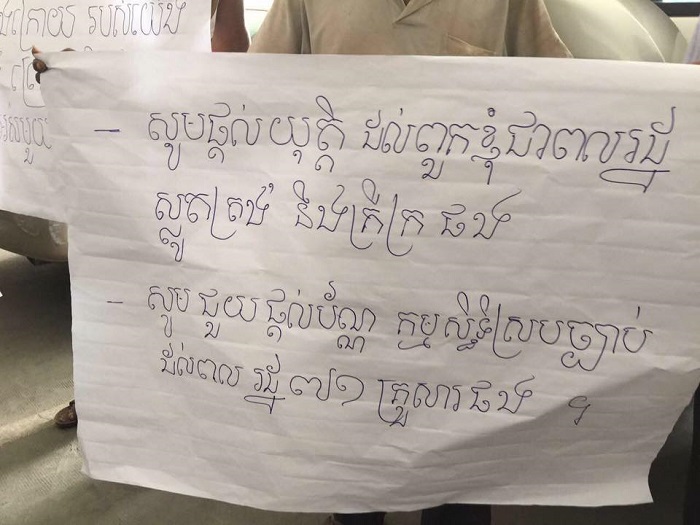 ក្រោយ របស់យើង
- សូមផ្ដល់យុត្តិ ដល់ពួកខ្ញុំជាពលរដ្ឋ
ស្លូតត្រង់ និងក្រីក្រ ផង
- សូម ជួយ ផ្ដល់ប័ណ្ណ កម្មសិទ្ធិស្របច្បាប់
ដល់ពល រដ្ឋ ៧១ គ្រួសារផង ។